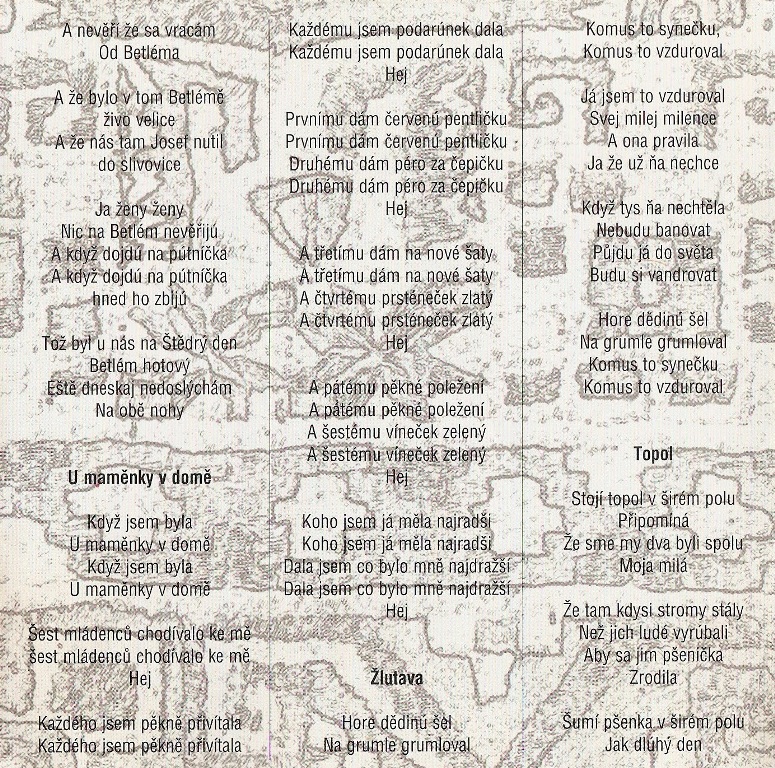 A nevěří že sa vracám
Od Betléma
A že bylo v tom Betlémě
živo velice
A že nás tam Josef nutil
do slivovice
Ja ženy ženy
Nic na Betlém nevěřijú
A když dojdú na pútníčka
A když dojdú na pútníčka
hned ho zbijú
Tož byl u nás na Štědrý den
Betlém hotový
Eště dneskaj nedoslýchám
Na obě nohy
U maměnky v domě
Když jsem byla
U maměnky v domě
Když jsem byla
U maměnky v domě
Šest mládenců chodívalo ke mě
šest mládenců chodívalo ke mě
Hej
Každého jsem pěkně přivítala
Každého jsem pěkně přivítala
Každému jsem podarúnek dala
Každému jsem podarúnek dala
Hej
Prvnímu dám červenú pentličku
Prvnímu dám červenú pentličku
Druhému dám péro za čepičku
Druhému dám péro za čepičku
Hej
A třetímu dám na nové šaty
A třetímu dám na nové šaty
A čtvrtému prstěneček zlatý
A čtvrtému prstěneček zlatý
Hej
A pátému pěkné poležení
A pátému pěkné poležení
A šestému víneček zelený
A šestému víneček zelený
Hej
Koho jsem já měla najradši
Koho jsem já měla najradši
Dala jsem co bylo mně najdražší
Dala jsem co bylo mně najdražší
Hej
Žlutava
Hore dědinú šel
Na grumle grumloval
Komus to synečku,
Komus to vzduroval
Já jsem to vzduroval
Svej milej milence
A ona pravila
Ja že už ňa nechce
Když tys ňa nechtěla
Nebudu banovat
Půjdu já do světa
Budu si vandrovat
Hore dědinú šel
Na grumle grumloval
Komus to synečku
Komus to vzduroval
Topol
Stojí topol v šírém polu
Připomíná
Že sme my dva byli spolu
Moja milá
Že tam kdysi stromy stály
Než jich ludé vyrúbali
Aby sa jim pšenička
Zrodila
Šumí pšenka v šírém polu
Jak dlúhý den